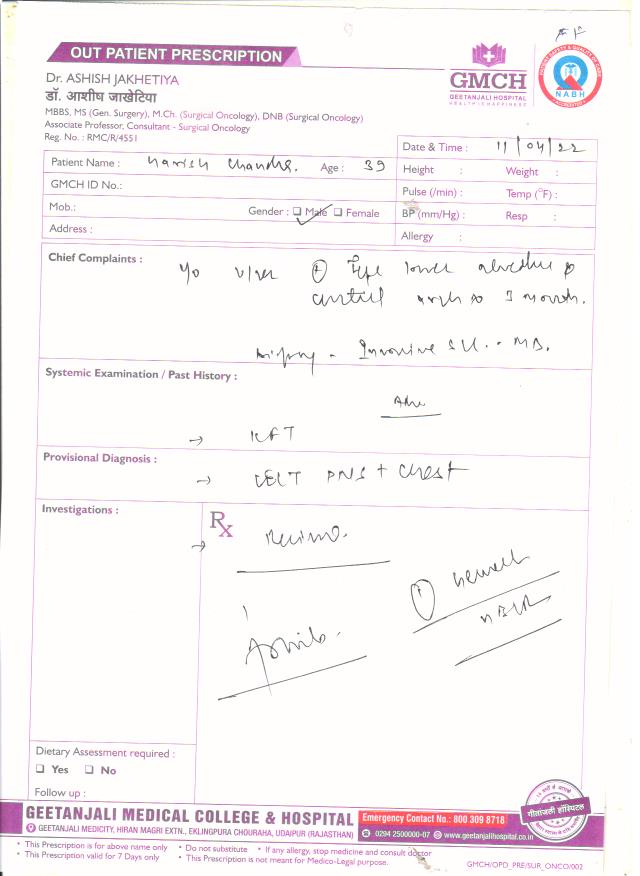 OUT PATIENT PRESCRIPTION
Dr. ASHISH JAKHETIYA
डॉ. आशीष जाखेटिया
MBBS, MS (Gen. Surgery), M.Ch. (Surgical Oncology), DNB (Surgical Oncology)
Associate Professor, Consultant - Surgical Oncology
Reg. No. : RMC/R/4551
GMCH
GEETANJALI HOSPITAL
HEALTH IS HAPPINESS
PATIENT SAFETY & QUALITY OF CARE
NABH
ACCREDITED
Patient Name : Harish Chandra. Age : 39
Date & Time : 11/04/22
GMCH ID No.:
Height : Weight :
Mob.: Gender : Male Female
Pulse (/min) : Temp (°F) :
BP (mm/Hg) : Resp :
Address :
Allergy :
Chief Complaints :
lower
central 3 month.
Biopsy - Invasive
Systemic Examination / Past History :
Adv
→ KFT
Provisional Diagnosis :
→ CECT PNS + Chest
Investigations :
Rx
→ Review.
Dietary Assessment required :
Yes No
Follow up :
गीतांजली हॉस्पिटल
GEETANJALI MEDICAL COLLEGE & HOSPITAL
Emergency Contact No.: 800 309 8718
GEETANJALI MEDICITY, HIRAN MAGRI EXTN., EKLINGPURA CHOURAHA, UDAIPUR (RAJASTHAN)
0294 2500000-07 www.geetanjalihospital.co.in
* This Prescription is for above name only * Do not substitute * If any allergy, stop medicine and consult doctor
* This Prescription valid for 7 Days only * This Prescription is not meant for Medico-Legal purpose.
GMCH/OPD_PRE/SUR_ONCO/002